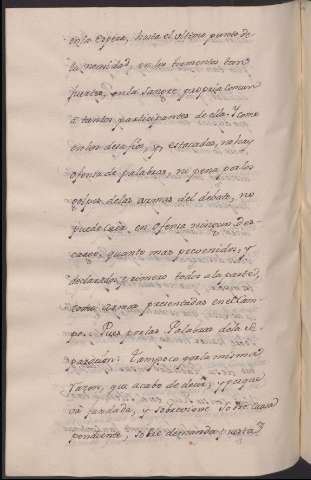 en la espera, hasta el ultimo punto de
la necesidad, en los tormentos tan
fuertes, en la sangre propria comun
à tantos participantes de ella. Y como
en los desafios, y estacadas, no hay
ofensa de palabras, ni pena por los
golpes de las armas del debate, no
puede caer en ofensa ninguna des
cargo, quanto mas prevenidos, y
declarados primero todos a la parte,
como armas presentadas en el Cam-
po. Pues por las Palabras de la se
paracion: Tampoco por la misma
razon, que acabo de decir, y porque
và fundada, y sobreviene sobre causa
pendiente, sobre demanda puesta